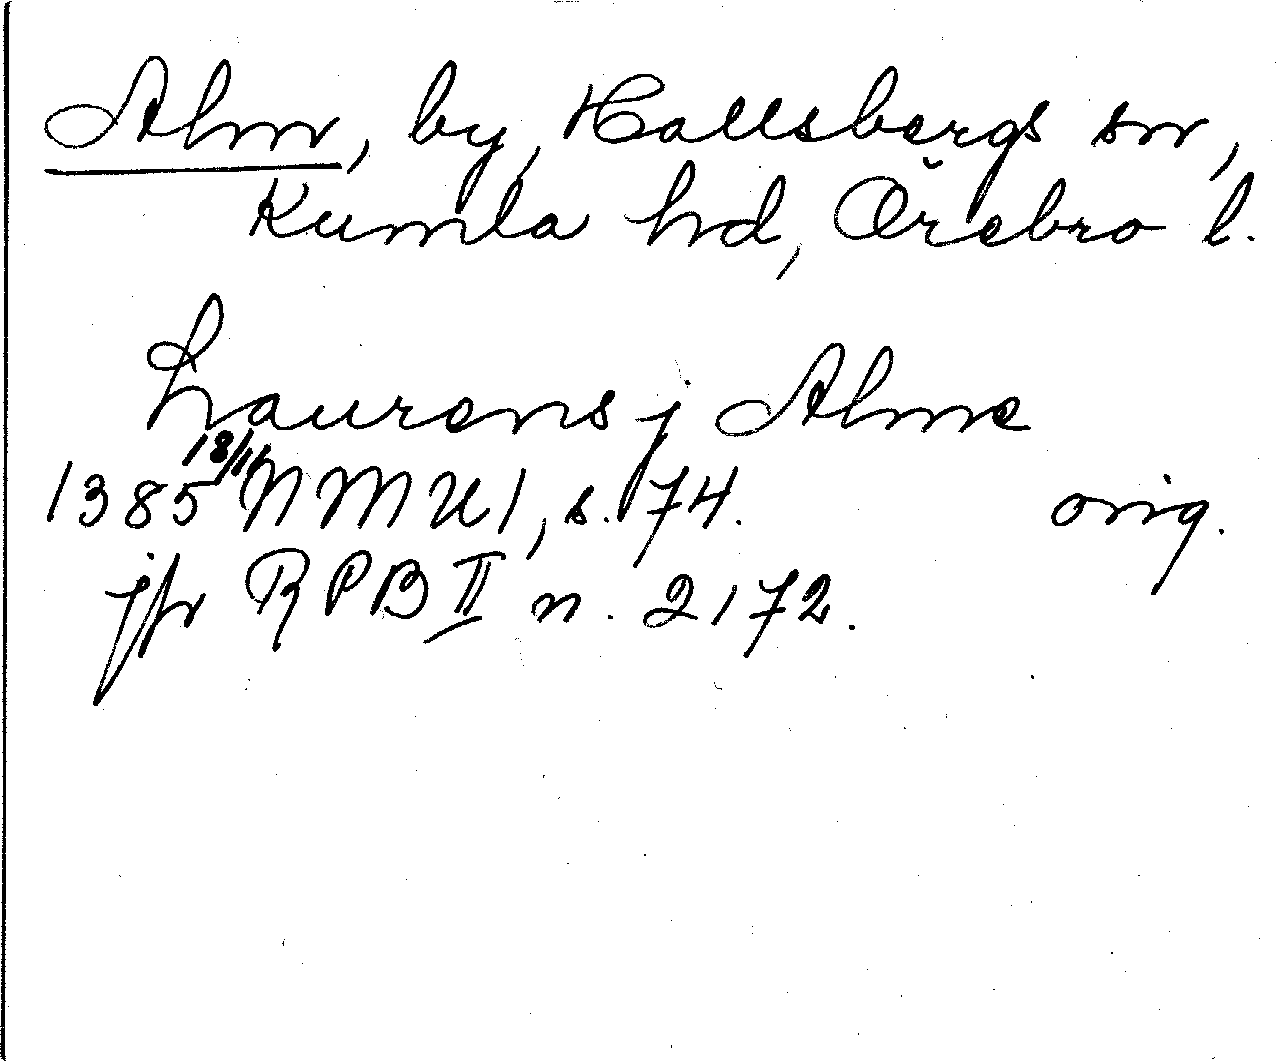 Alm, by, Hallsbergs sn,
Kumla hd, Örebro l.
Laurens j Alme
1385 18/11 NMU1, s. 74. orig.
jfr RPB II n. 2172.